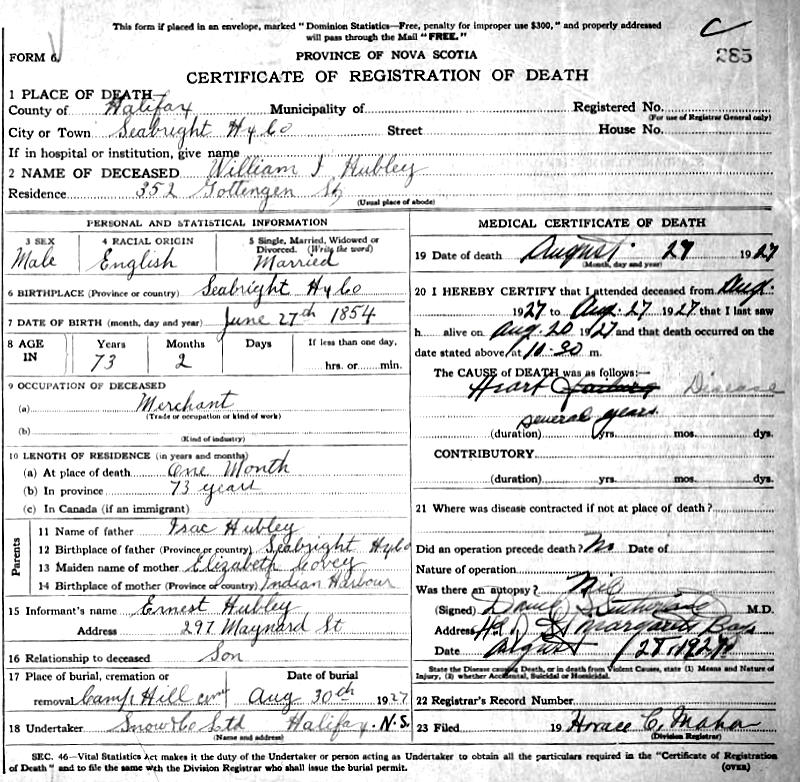 This form if placed in an envelope, marked "Dominion Statistics—Free, penalty for improper use $300," and properly addressed
will pass through the Mail "FREE."
C
FORM 6.
PROVINCE OF NOVA SCOTIA
285
CERTIFICATE OF REGISTRATION OF DEATH
1 PLACE OF DEATH—
County of Halifax Municipality of Registered No.
(For use of Registrar General only)
City or Town Seabright Hx Co Street House No.
If in hospital or institution, give name
2 NAME OF DECEASED William I Hubley
Residence 352 Gottingen St
(Usual place of abode)
PERSONAL AND STATISTICAL INFORMATION
3 SEX
Male
4 RACIAL ORIGIN
English
5 Single, Married, Widowed or
Divorced. (Write the word)
Married
6 BIRTHPLACE (Province or country) Seabright Hx Co
7 DATE OF BIRTH (month, day and year) June 27th 1854
8 AGE
IN
Years
73
Months
2
Days
If less than one day,
hrs. or min.
9 OCCUPATION OF DECEASED
(a) Merchant
(Trade or occupation or kind of work)
(b)
(Kind of industry)
10 LENGTH OF RESIDENCE (in years and months)
(a) At place of death One Month
(b) In province 73 years
(c) In Canada (if an immigrant)
Parents
11 Name of father Isac Hubley
12 Birthplace of father (Province or country) Seabright Hx Co
13 Maiden name of mother Elizabeth Covey
14 Birthplace of mother (Province or country) Indian Harbour
15 Informant's name Ernest Hubley
Address 297 Maynard St
16 Relationship to deceased Son
17 Place of burial, cremation or
removal Camp Hill cem
Date of burial
Aug 30th 1927
18 Undertaker Snow & Co Ltd Halifax. N.S.
(Name and address)
MEDICAL CERTIFICATE OF DEATH
19 Date of death August 27 1927
(Month, day and year)
20 I HEREBY CERTIFY that I attended deceased from Aug.
1927 to Aug. 27 1927 that I last saw
h alive on Aug. 20 1927 and that death occurred on the
date stated above at 10.30 m.
The CAUSE of DEATH was as follows:—
Heart failure Disease
several years
(duration) yrs. mos. dys.
CONTRIBUTORY
(duration) yrs. mos. dys.
21 Where was disease contracted if not at place of death?
Did an operation precede death? No Date of
Nature of operation
Was there an autopsy?
(Signed) M.D.
Address St Margarets Bay
Date August 28. 1927
State the Disease causing Death, or in death from Violent Causes, state (1) Means and Nature of
Injury, (2) whether Accidental, Suicidal or Homicidal.
22 Registrar's Record Number
23 Filed 19 Horace C.
(Division Registrar)
SEC. 46—Vital Statistics Act makes it the duty of the Undertaker or person acting as Undertaker to obtain all the particulars required in the "Certificate of Registration
of Death" and to file the same with the Division Registrar who shall issue the burial permit.
(OVER)